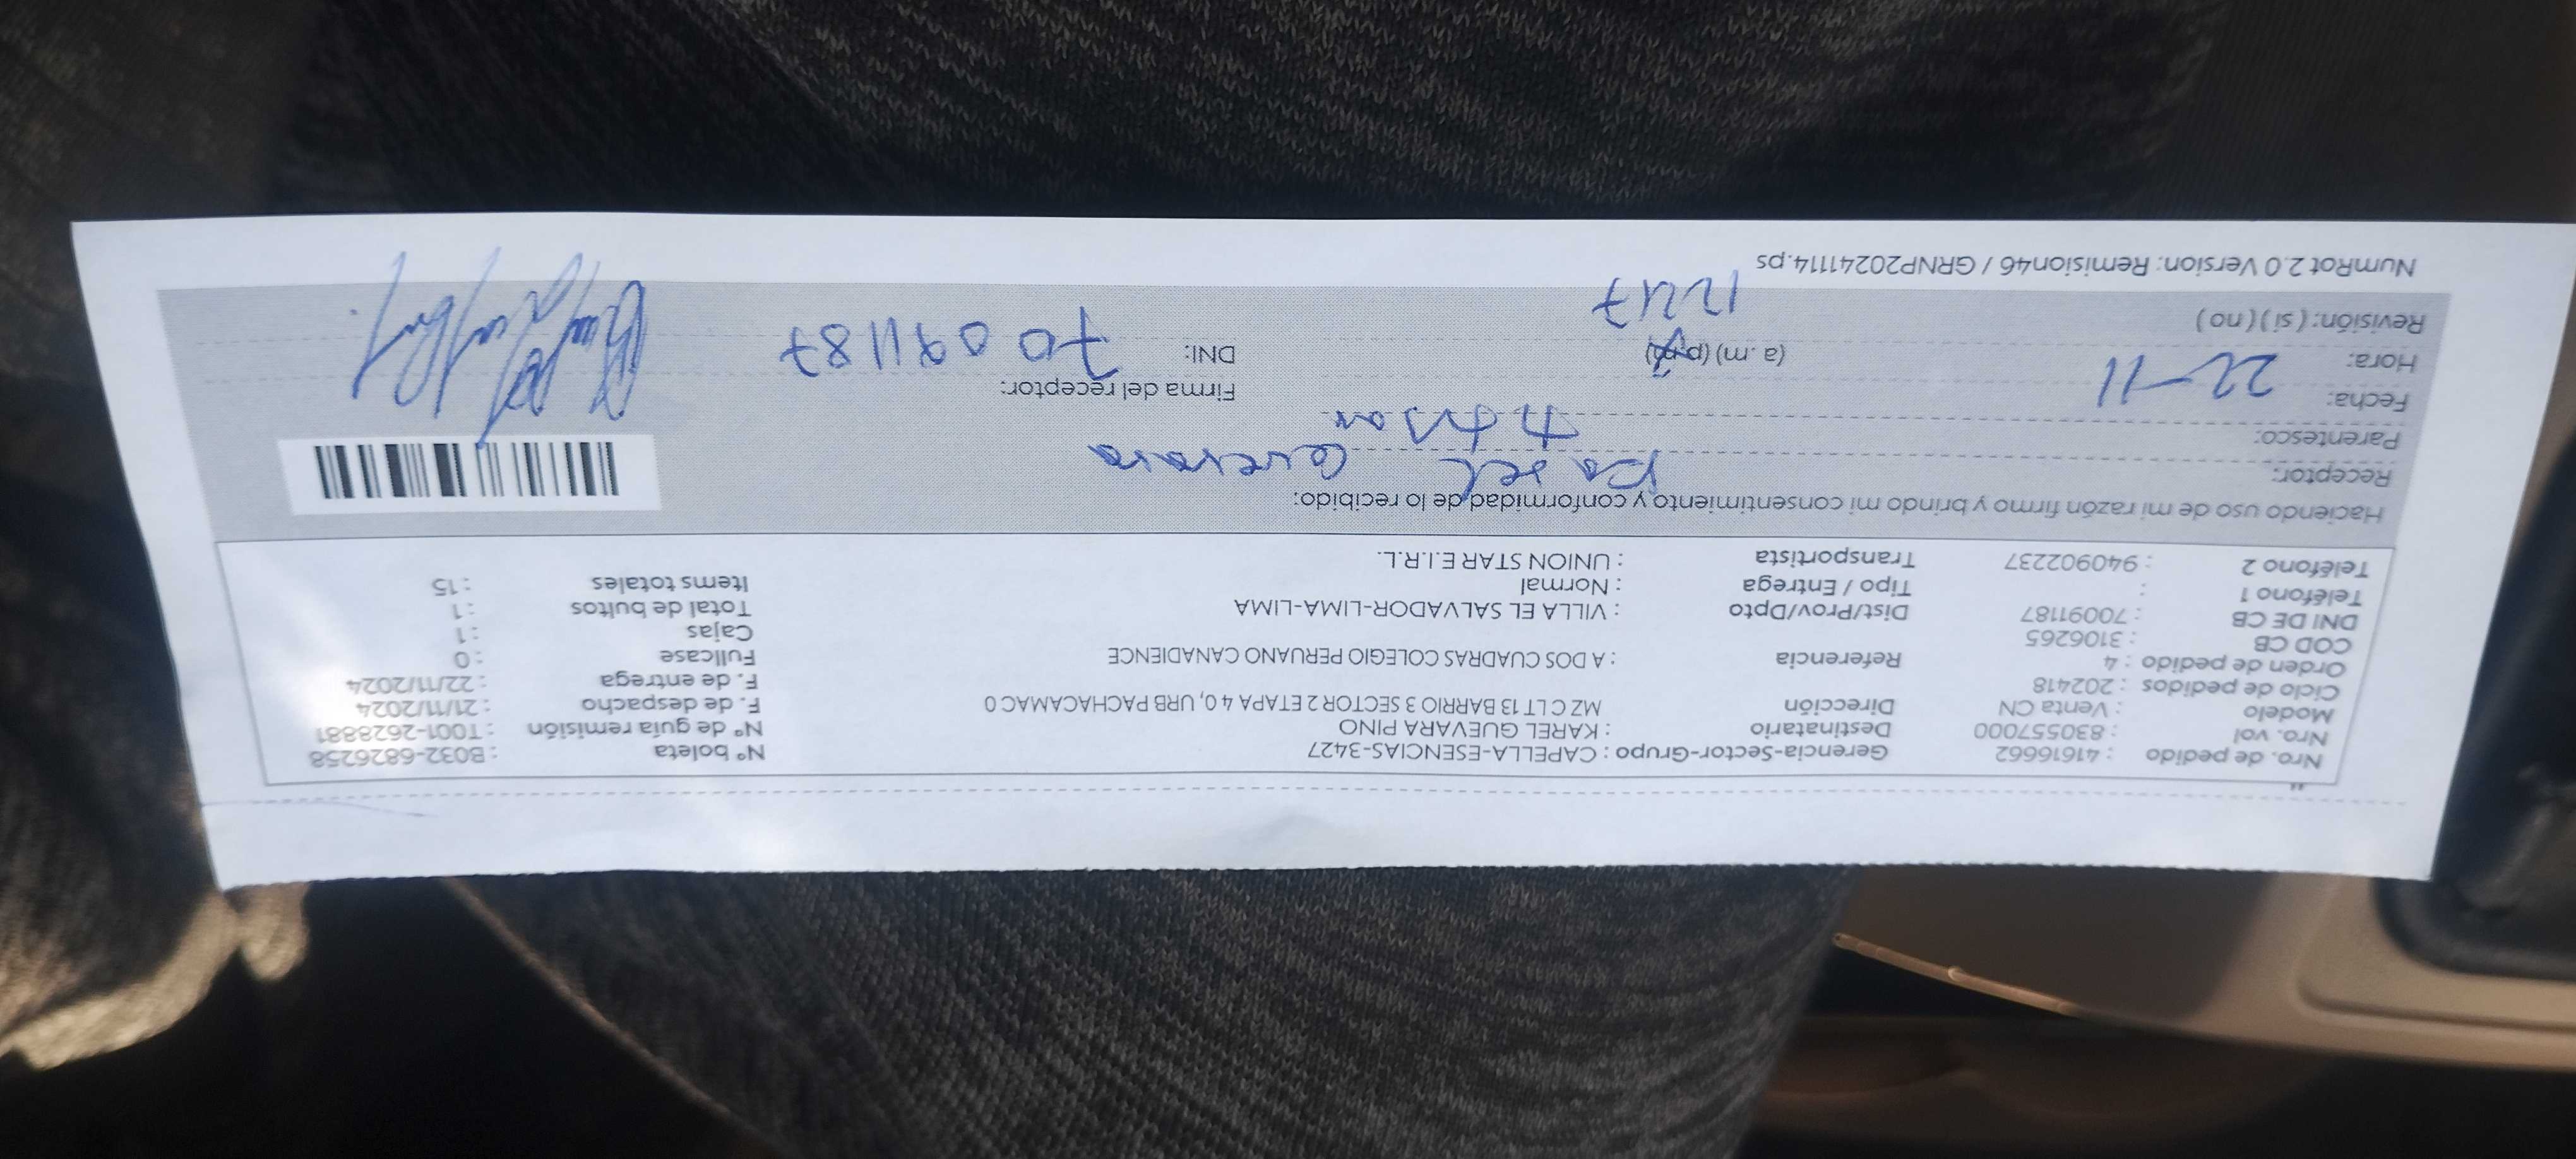 Nro. de pedido : 41616662 Gerencia-Sector-Grupo : CAPELLA-ESENCIAS-3427 N° boleta : B032-6826258
Nro. vol : 830557000 Destinatario : KAREL GUEVARA PINO N° de guía remisión : T001-2628881
Modelo : Venta CN Dirección MZ C LT 13 BARRIO 3 SECTOR 2 ETAPA 4 0, URB PACHACAMAC 0 F. de despacho : 21/11/2024
Ciclo de pedidos : 202418 F. de entrega : 22/11/2024
Orden de pedido : 4 Referencia : A DOS CUADRAS COLEGIO PERUANO CANADIENCE Fullcase : 0
COD CB : 3106265 Cajas : 1
DNI DE CB : 70091187 Dist/Prov/Dpto : VILLA EL SALVADOR-LIMA-LIMA Total de bultos : 1
Teléfono 1 : Tipo / Entrega : Normal Items totales : 15
Teléfono 2 : 940902237 Transportista : UNION STAR E.I.R.L.
Haciendo uso de mi razón firmo y brindo mi consentimiento y conformidad de lo recibido:
Receptor: Karel Guevara
Parentesco:
Fecha: 22-11 Firma del receptor:
Hora: (a. m) (p. m) DNI: 70091187
Revisión: ( si ) ( no ) 1247
NumRot 2.0 Version: Remision46 / GRNP20241114.ps